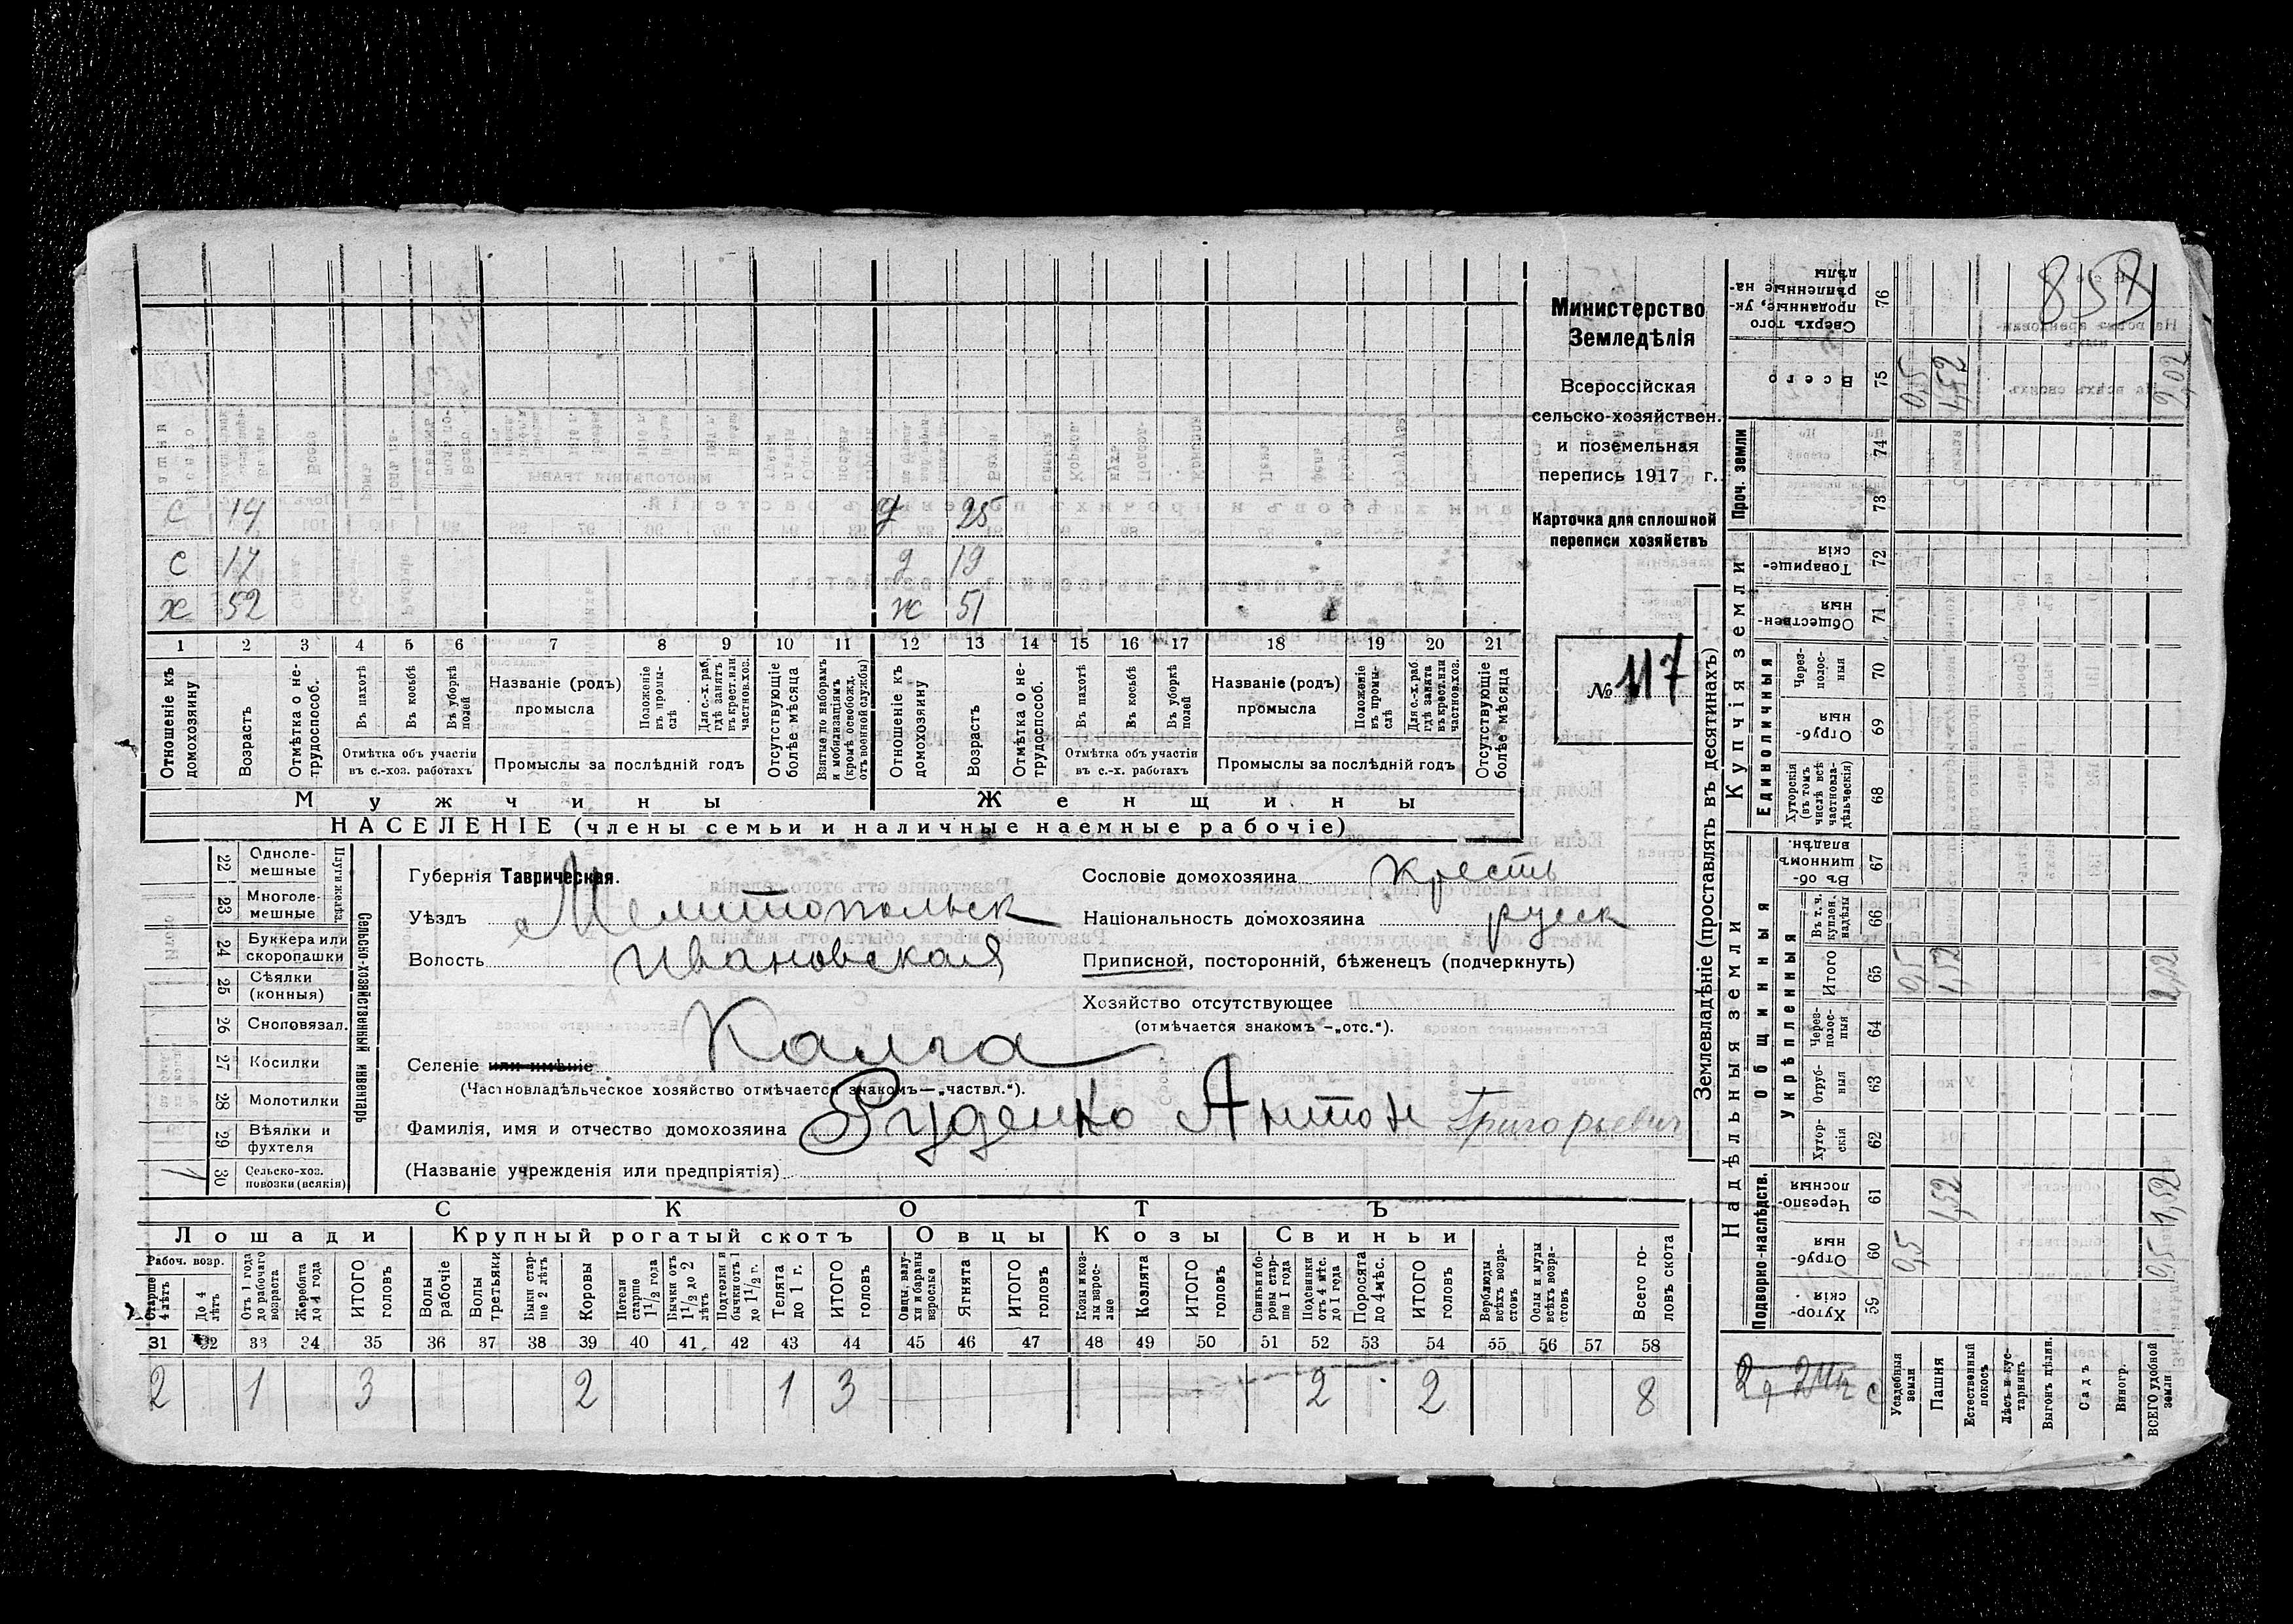 853
Министерство
Земледѣлія
Всероссійская
сельско-хозяйствен.
и поземельная
перепись 1917 г.
Карточка для сплошной
переписи хозяйствъ
№ 117
с 14 д 25
с 17 д 19
х 52 ж 51
1 2 3 4 5 6 7 8 9 10 11 12 13 14 15 16 17 18 19 20 21
Отношеніе къ домохозяину
Возрастъ
Отмѣтка о нетрудоспособ.
Въ пахотѣ
Въ косьбѣ
Въ уборкѣ полей
Отмѣтка объ участіи
въ с.-хоз. работахъ
Названіе (родъ)
промысла
Положеніе въ промыслѣ
Для с.-х. раб. гдѣ занятъ въ крест. или частнов. хоз.
Промыслы за послѣдній годъ
Отсутствующіе болѣе мѣсяца
Взятые по наборамъ и мобилизаціямъ (кромѣ освобожд. отъ военной службы)
Отношеніе къ домохозяину
Возрастъ
Отмѣтка о нетрудоспособ.
Въ пахотѣ
Въ косьбѣ
Въ уборкѣ полей
Отмѣтка объ участіи
въ с.-х. работахъ
Названіе (родъ)
промысла
Положеніе въ промыслѣ
Для с.-х. раб. гдѣ занята въ крест. или частнов. хоз.
Промыслы за послѣдній годъ
Отсутствующіе болѣе мѣсяца
Мужчины Женщины
НАСЕЛЕНІЕ (члены семьи и наличные наемные рабочіе)
Сельско-хозяйственный инвентарь
Плуги желѣз.
22 Однолемешные
23 Многолемешные
24 Буккера или скоропашки
25 Сѣялки (конныя)
26 Сноповязал.
27 Косилки
28 Молотилки
29 Вѣялки и фухтеля
30 Сельско-хоз. повозки (всякія) 1
Губернія Таврическая.
Уѣздъ Мелитопольск
Волость Ивановская
Селеніе или имѣніе Калга
(Частновладѣльческое хозяйство отмѣчается знакомъ—„частвл.“).
Сословіе домохозяина кресть
Національность домохозяина русск
Приписной, посторонній, бѣженецъ (подчеркнуть)
Хозяйство отсутствующее
(отмѣчается знакомъ –„отс.“).
Фамилія, имя и отчество домохозяина Руденко Антон Григорьевич
(Названіе учрежденія или предпріятія)
СКОТЪ
Лошади Крупный рогатый скотъ Овцы Козы Свиньи
Рабоч. возр.
Старше 4 лѣтъ
До 4 лѣтъ
Отъ 1 года до рабочаго возраста
Жеребята до 1 года
ИТОГО головъ
Волы рабочіе
Волы третьяки
Быки старше 2 лѣтъ
Коровы
Нетели старше 1 1/2 года
Бычки отъ 1 1/2 до 2 лѣтъ
Подтелки и бычки отъ 1 до 1 1/2 г.
Телята до 1 г.
ИТОГО головъ
Овцы, валухи и бараны взрослые
Ягнята
ИТОГО головъ
Козы и козлы взрослые
Козлята
ИТОГО головъ
Свиньи и боровы старше 1 года
Подсвинки отъ 4 мѣс. до 1 года
Поросята до 4 мѣс.
ИТОГО головъ
Верблюды всѣхъ возрастовъ
Ослы и мулы всѣхъ возрастовъ
Всего головъ скота
31 32 33 34 35 36 37 38 39 40 41 42 43 44 45 46 47 48 49 50 51 52 53 54 55 56 57 58
2 1 3 2 1 3 2 2 8
Землевладѣніе (проставлять въ десятинахъ)
Надѣльныя земли Купчія земли Проч. земли
Подворно-наслѣдств.
Общинныя
Укрѣпленныя
Единоличныя
Хуторскія 59
Отрубныя 60
Черезполосныя 61
Хуторскія 62
Отрубныя 63
Черезполосныя 64
Итого 65
Въ т. ч. куплен. надѣлы 66
Въ общинномъ владѣн. 67
Хуторскія (въ томъ числѣ всѣ частновладѣльческія) 68
Отрубныя 69
Черезполосныя 70
Общественныя 71
Товарищескія 72
73
74
Всего 75
Сверхъ того проданные, укрѣпленные надѣлы 76
Усадебныя земли 0,5 0,5 0,5
Пашня 1,52 1,52 1,52
Естественный покосъ
Лѣсъ и кустарникъ
Выгонъ дѣлин.
Садъ
Виногр.
ВСЕГО удобной земли 0,5 1,52 2,02 2,02